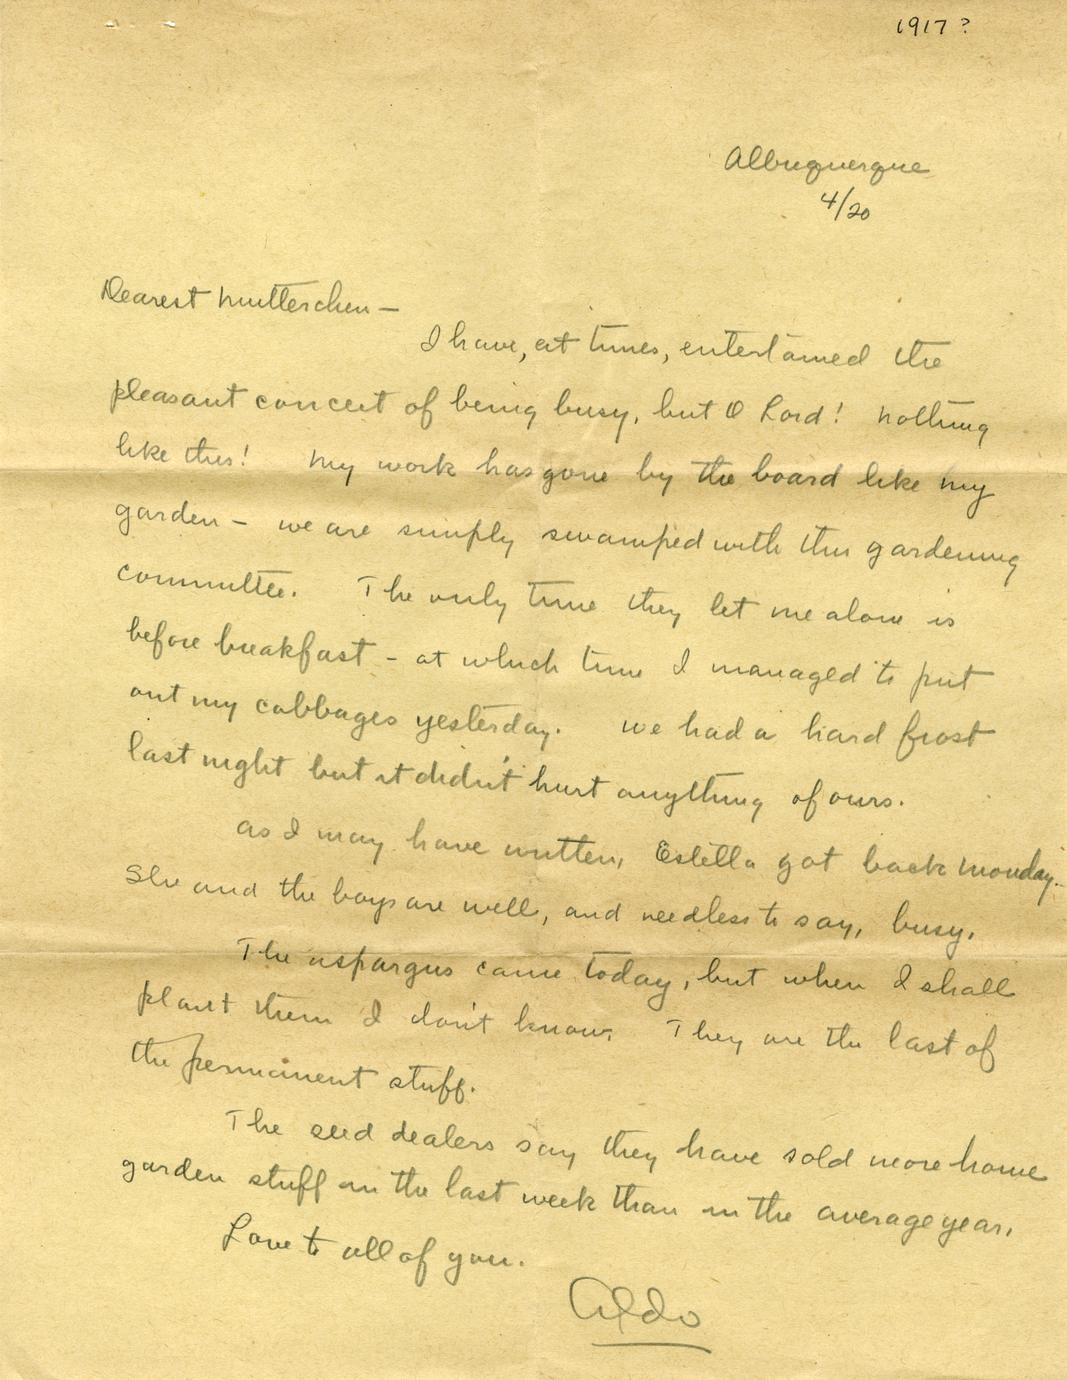 1917?
Albuquerque
4/20
Dearest Mutterchen —
I have, at times, entertained the
pleasant conceit of being busy, but O Lord! Nothing
like this! My work has gone by the board like my
garden - we are simply swamped with this gardening
committee. The only time they let me alone is
before breakfast - at which time I managed to put
out my cabbages yesterday. We had a hard frost
last night but it didn't hurt anything of ours.
As I may have written, Estella got back Monday.
She and the boys are well, and needless to say, busy.
The aspargus came today, but when I shall
plant them I don't know. They are the last of
the permanent stuff.
The seed dealers say they have sold more home
garden stuff in the last week than in the average year.
Love to all of you.
Aldo